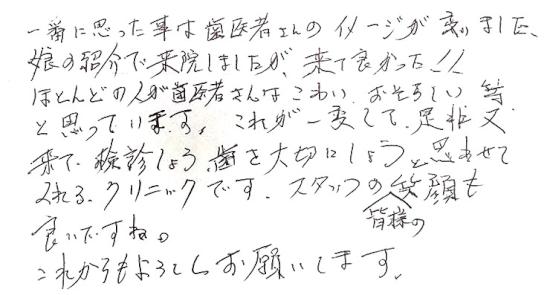 一番に思った事は歯医者さんのイメージが変りました、
娘の紹介で来院しましたが、来て良かった!!
ほとんどの人が歯医者さんはこわい、おそろしい 等
と思っています。これが一変して、是非又
来て、検診しよう、歯を大切にしようと思わせて
くれる、クリニックです。スタッフの皆様の笑顔も
良いですね。
これからもよろしくお願いします。